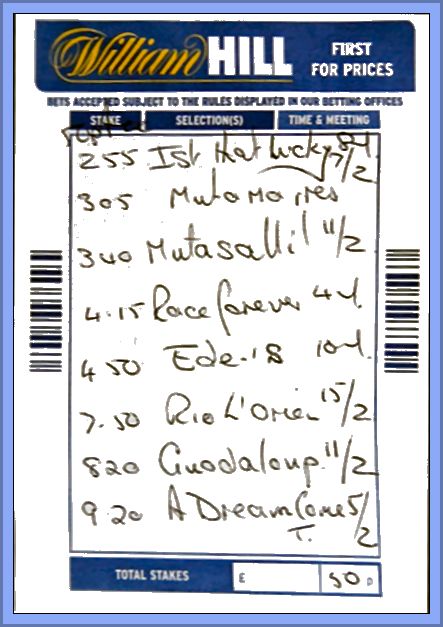 William HILL FIRST
FOR PRICES
BETS ACCEPTED SUBJECT TO THE RULES DISPLAYED IN OUR BETTING OFFICES
STAKE SELECTION(S) TIME & MEETING
255 Ist that lucky 7/2
305 Mutamaires
340 Mutasalli! 11/2
4.15 Race forever 4
4 50 Ede-is 10
7.50 Rio L'Orien 15/2
820 Guadaloup. 11/2
9 20 A Dream Come 5/2
T.
TOTAL STAKES £ 50 p